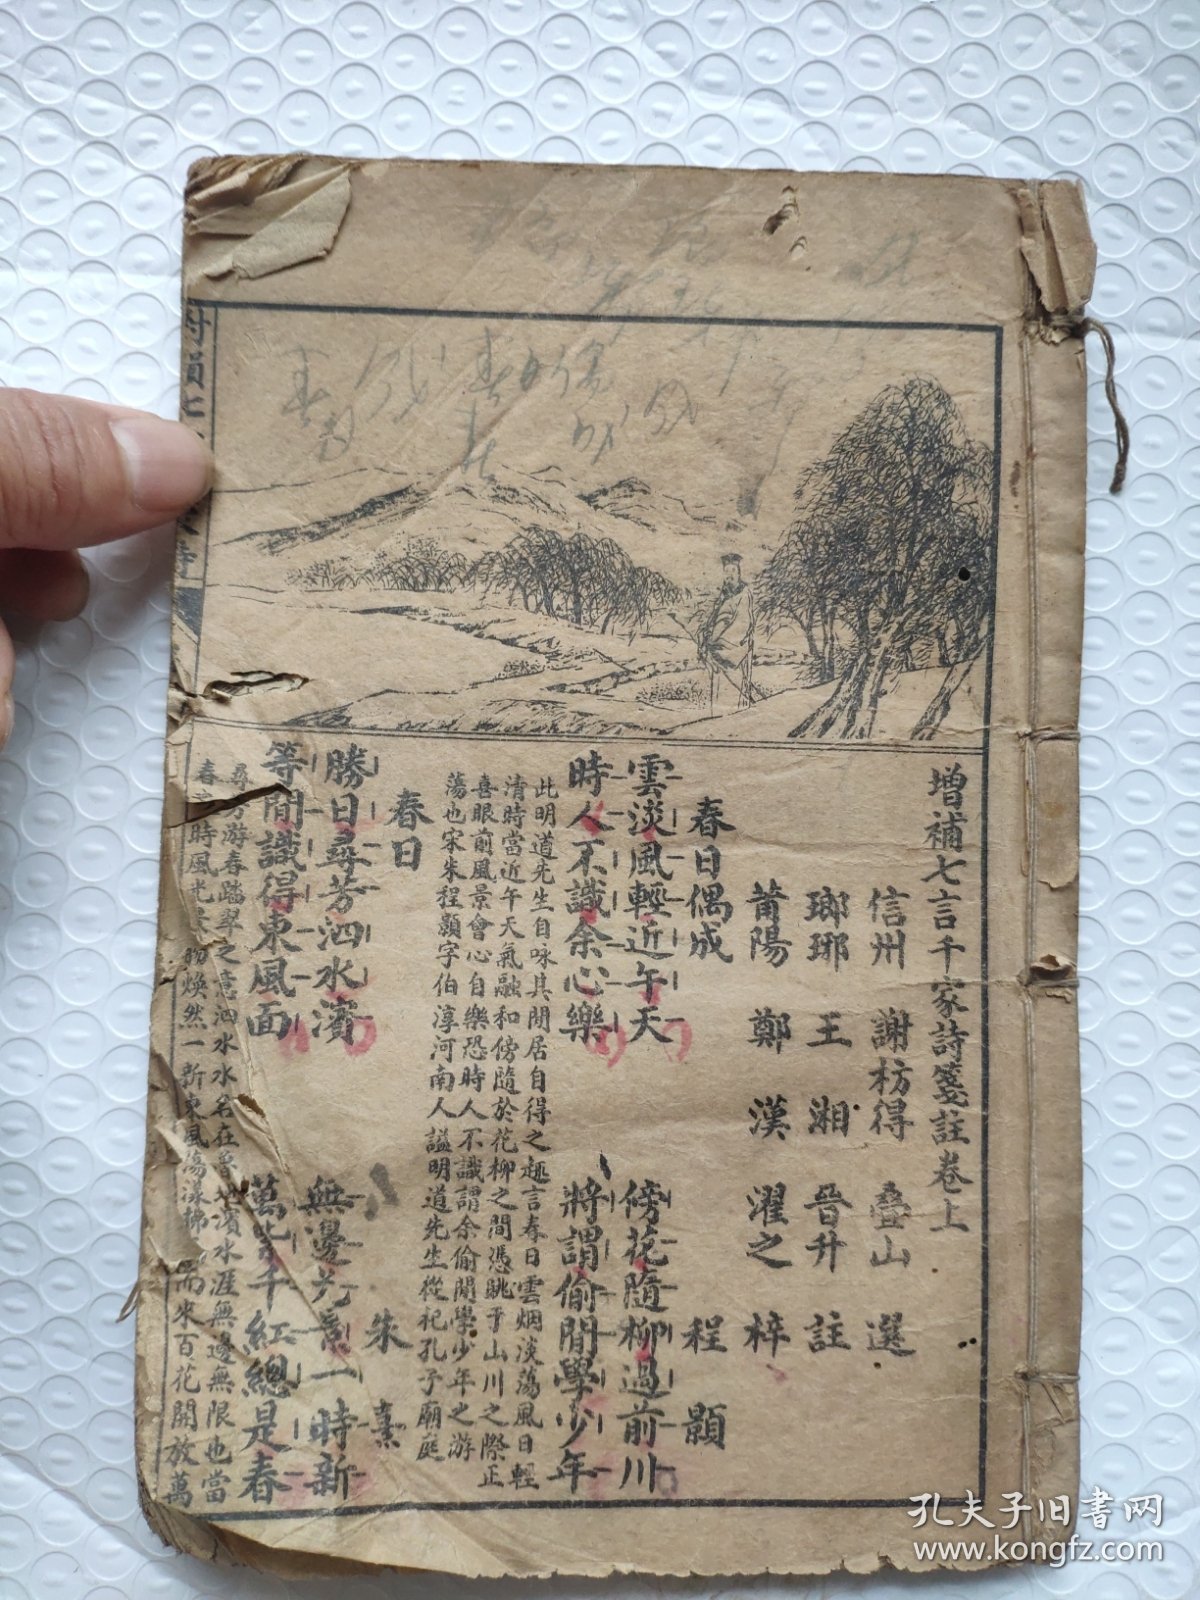 增補七言千家詩箋註卷上
信州 謝枋得 疊山 選
瑯琊 王湘 晉升 註
莆陽 鄭漢 濯之 梓
春日偶成 程顥
雲淡風輕近午天 傍花隨柳過前川
時人不識余心樂 將謂偷閒學少年
此明道先生自咏其閒居自得之趣言春日雲烟淡蕩風日輕
清時當近午天氣融和傍隨於花柳之間憑眺于山川之際正
喜眼前風景會心自樂恐時人不識謂余偷閒學少年之游
蕩也宋朱程顥字伯淳河南人謚明道先生從祀孔子廟庭
春日 朱熹
勝日尋芳泗水濱 無邊光景一時新
等閒識得東風面 萬紫千紅總是春
尋芳游春踏翠之意泗水水名在魯地濱水涯無邊無限也當
春之時風光景物煥然一新東風蕩漾拂而來百花開放萬
孔夫子旧书网
www.kongfz.com